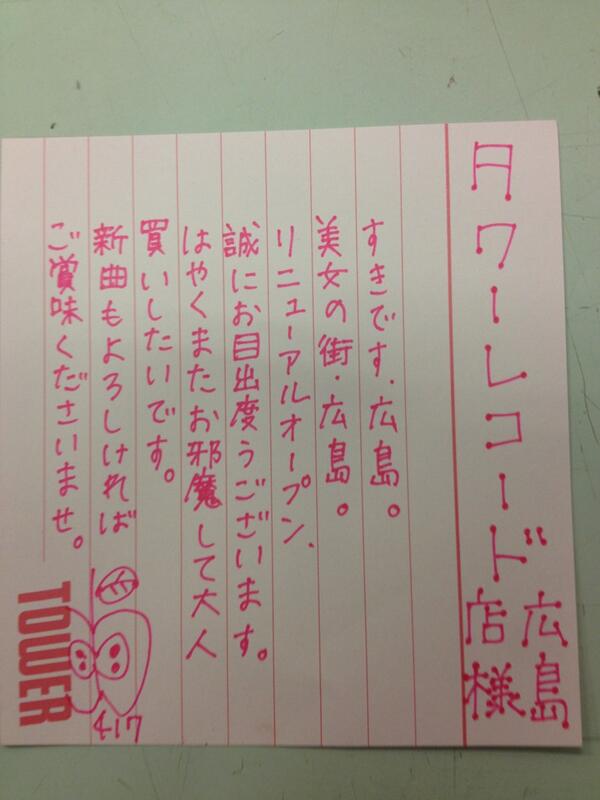 タワーレコード広島店様
すきです、広島。
美女の街・広島。
リニューアルオープン、
誠にお目出度うございます。
はやくまたお邪魔して大人
買いしたいです。
新曲もよろしければ
ご賞味くださいませ。
4.17
TOWER